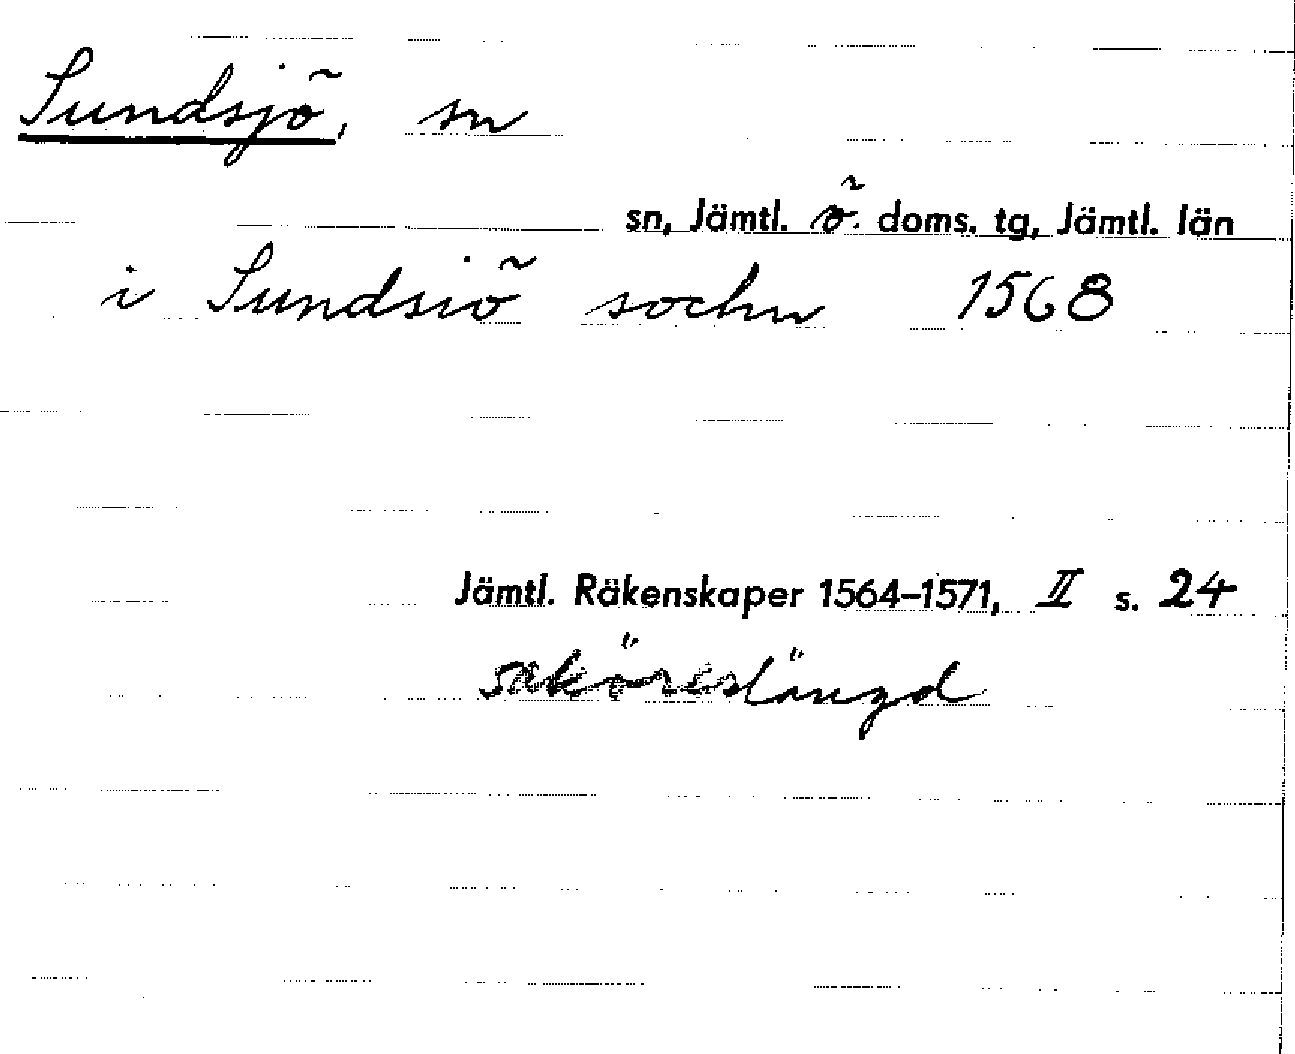 Sundsjö, sn
sn, Jämtl. ö. doms. tg, Jämtl. län
i Sundsiö sochn 1568
Jämtl. Räkenskaper 1564–1571, II s. 24
saköreslängd